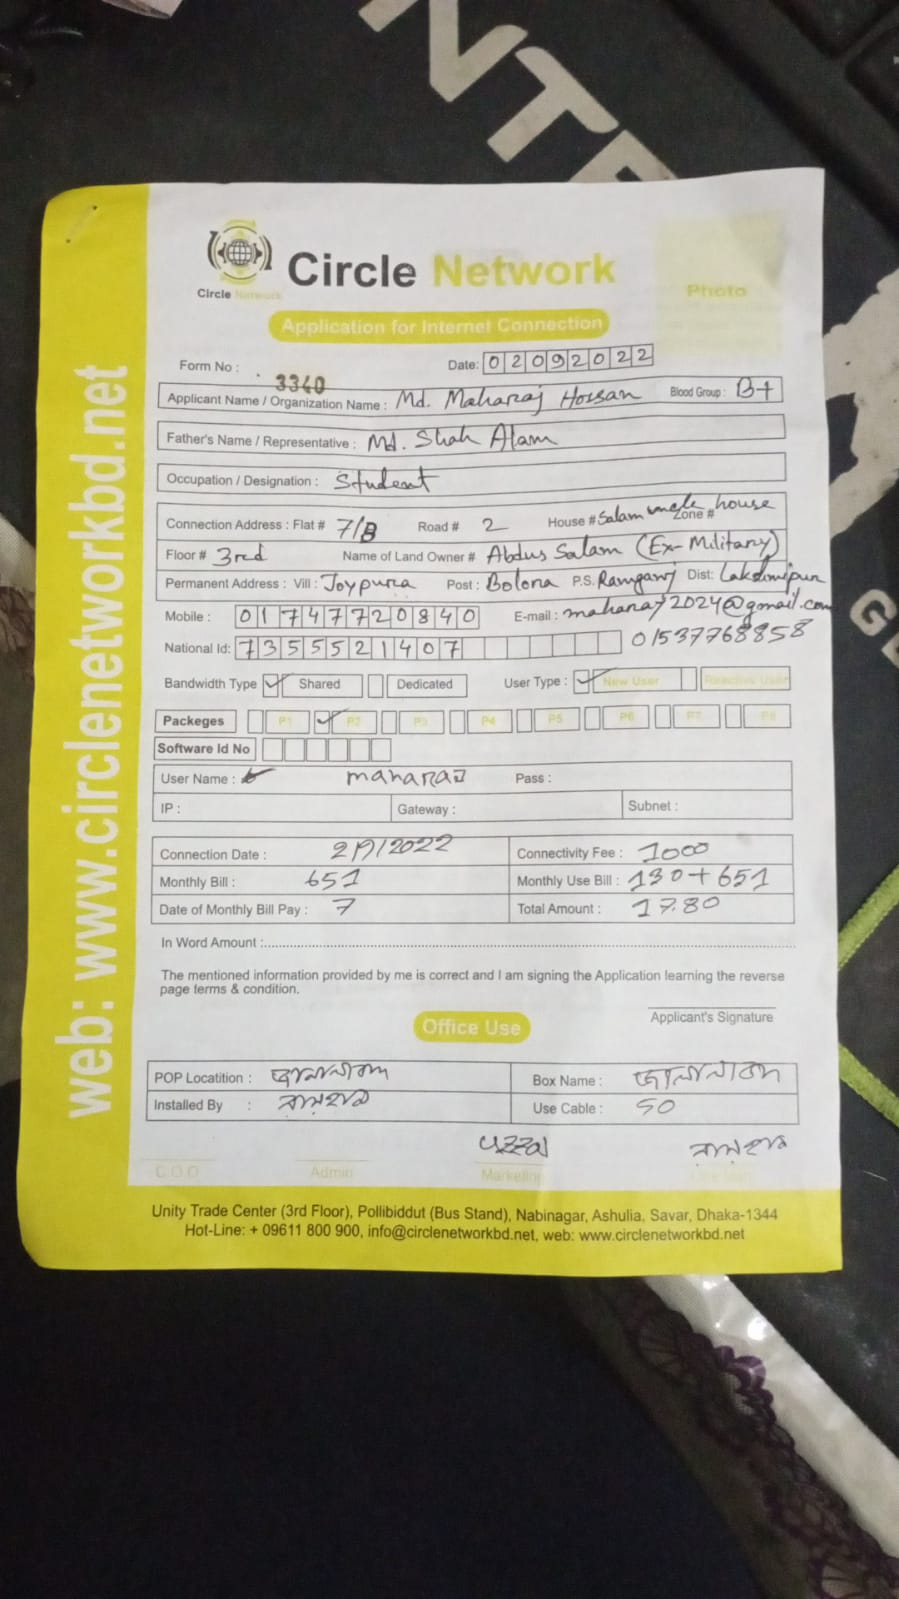 NTE
Circle Network
Circle Network
Photo
Application for Internet Connection
Form No : 3340
Date: 02092022
Applicant Name / Organization Name : Md. Maharaj Hossan Blood Group : B+
Father's Name / Representative : Md. Shah Alam
Occupation / Designation : Student
Connection Address : Flat # 7/B Road # 2 House # Salam house Zone #
Floor # 3rd Name of Land Owner # Abdus Salam (Ex-Military)
Permanent Address : Vill : Joypura Post : Bolora P.S. Ramganj Dist: Lakshmipur
Mobile : 01747720840 E-mail : maharaj2024@gmail.com
National Id: 7355521407 01537768858
Bandwidth Type Shared Dedicated User Type : New User Reactive User
Packeges P1 P2 P3 P4 P5 P6 P7 P8
Software Id No
User Name : maharaj Pass :
IP : Gateway : Subnet :
Connection Date : 2/9/2022 Connectivity Fee : 1000
Monthly Bill : 651 Monthly Use Bill : 130+651
Date of Monthly Bill Pay : 7 Total Amount : 1780
In Word Amount :
The mentioned information provided by me is correct and I am signing the Application learning the reverse
page terms & condition.
Applicant's Signature
Office Use
POP Locatition : Box Name :
Installed By : Use Cable : 50
C.O.O Admin Marketing
Unity Trade Center (3rd Floor), Pollibiddut (Bus Stand), Nabinagar, Ashulia, Savar, Dhaka-1344
Hot-Line: + 09611 800 900, info@circlenetworkbd.net, web: www.circlenetworkbd.net
web: www.circlenetworkbd.net